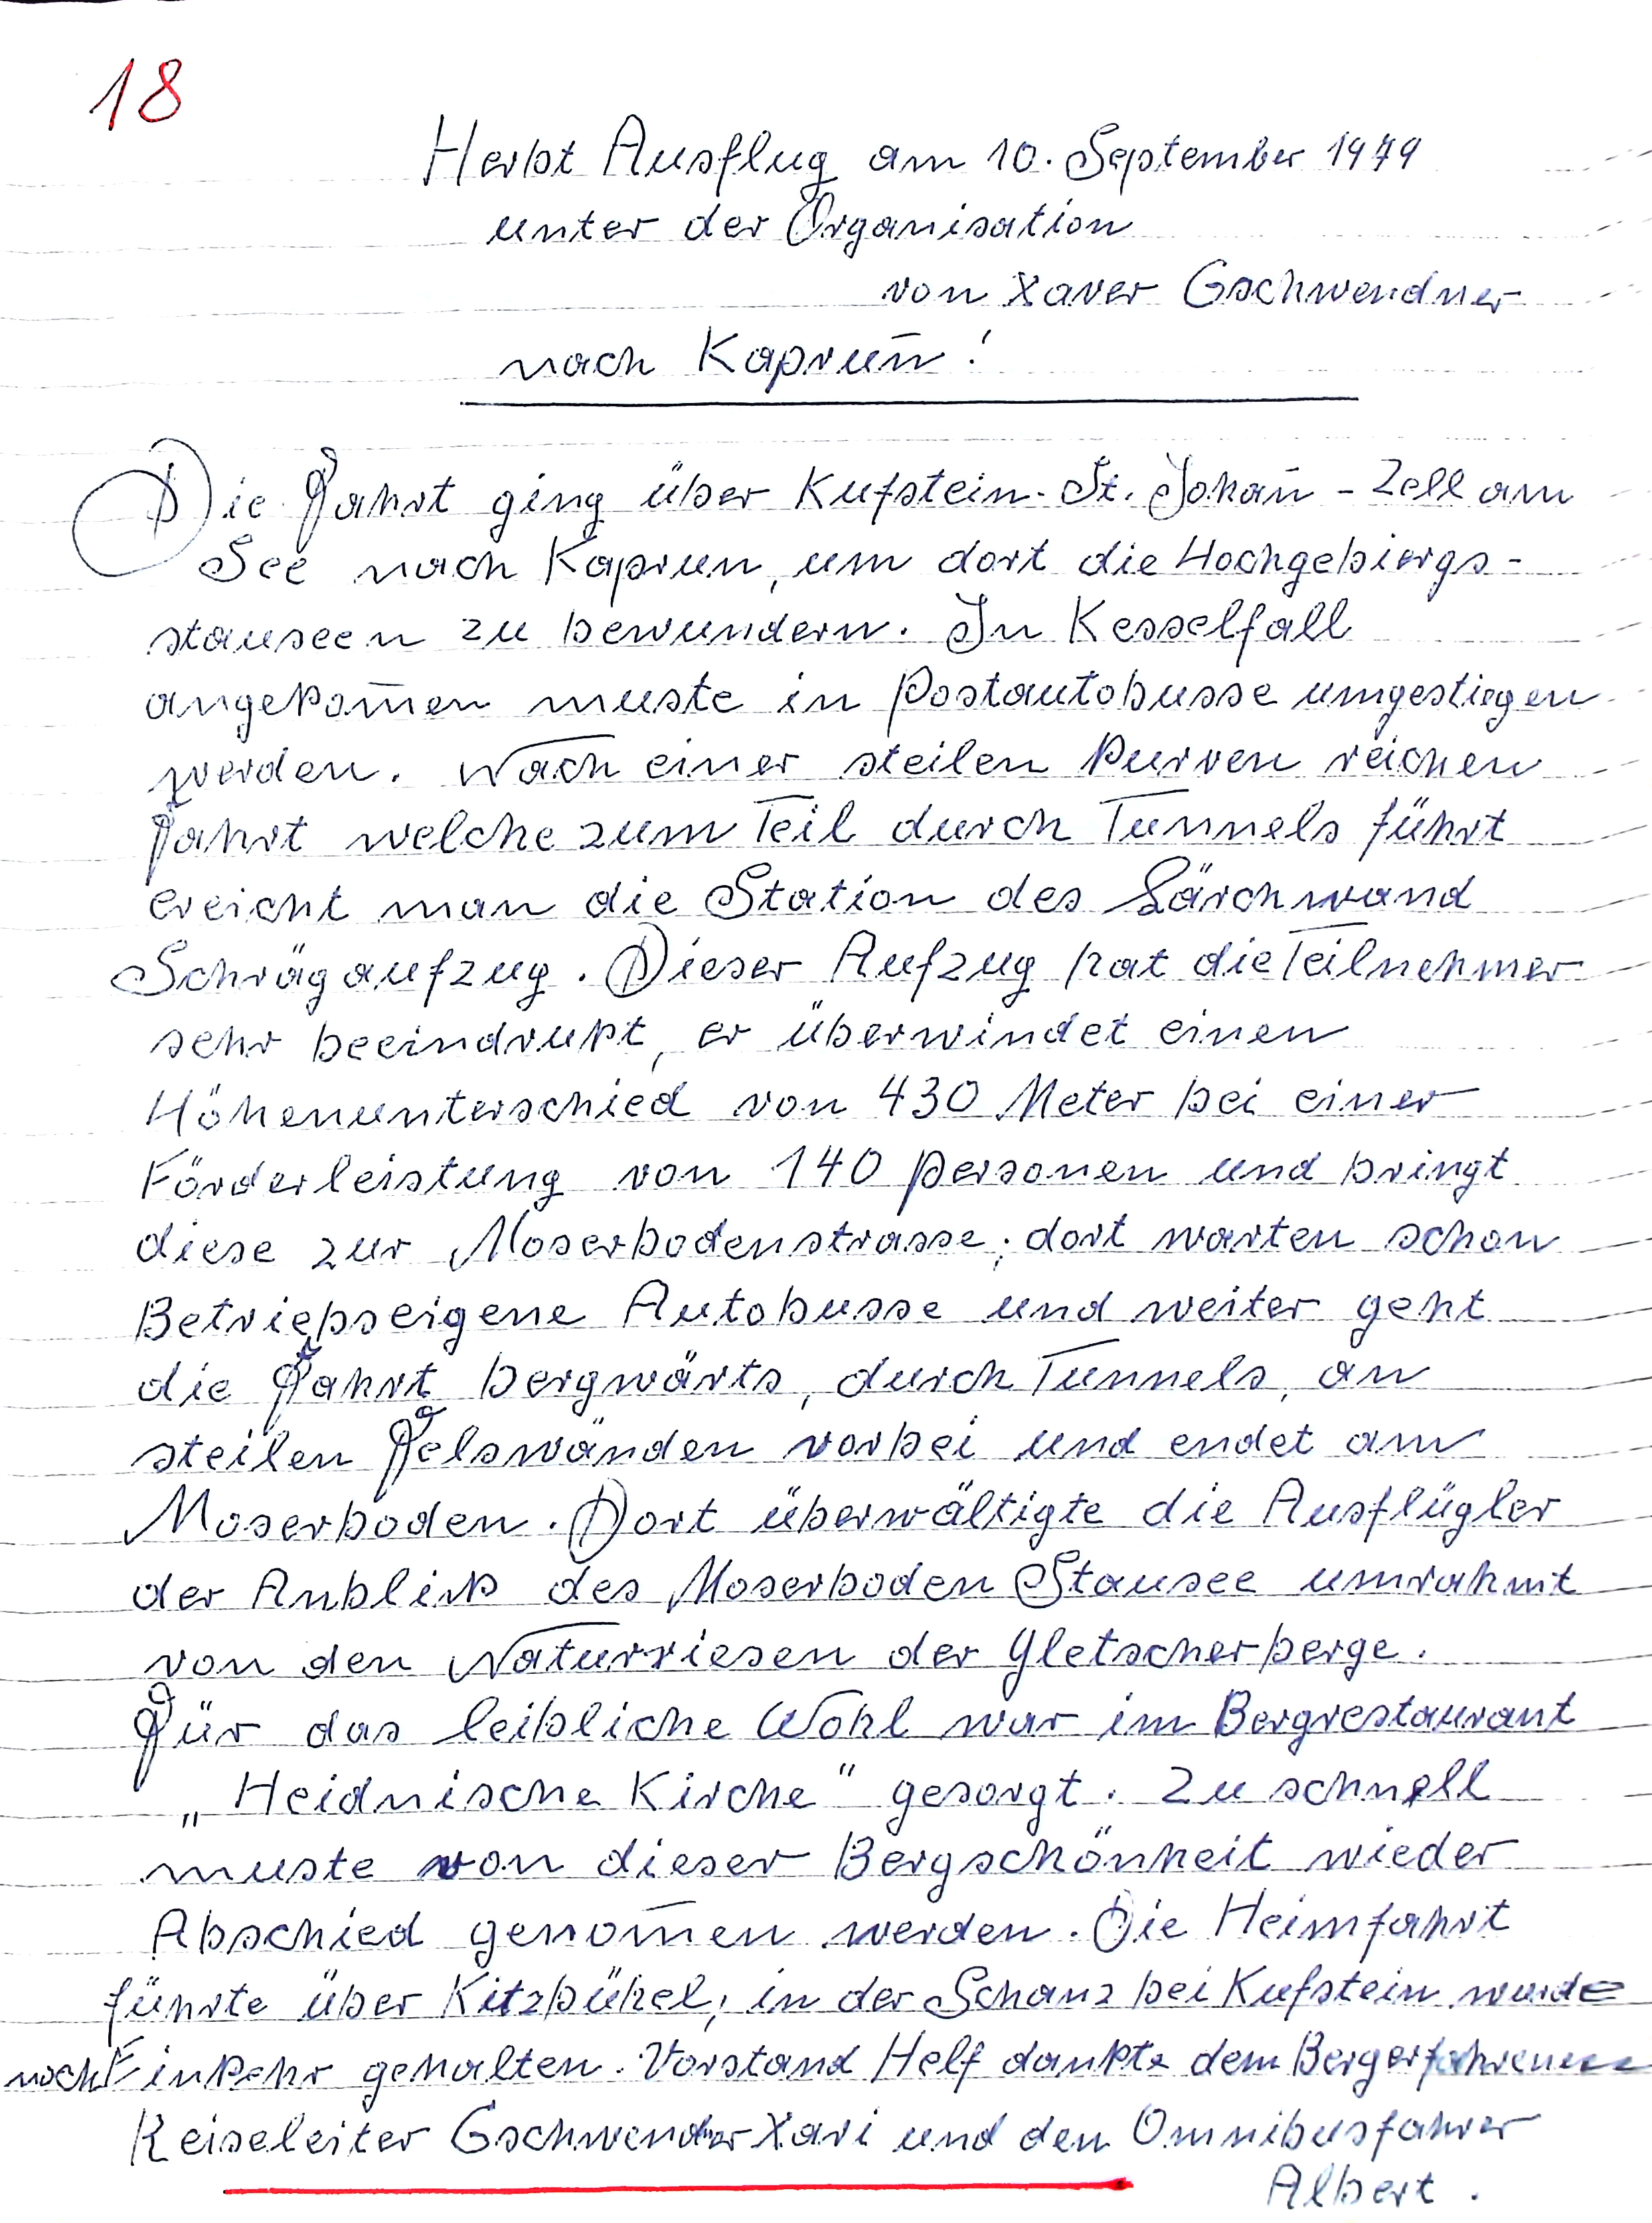 18
Herbst Ausflug am 10. September 1979
unter der Organisation
von Xaver Gschwendner
nach Kaprun̄!
Die Fahrt ging über Kufstein - St. Johan̄ - Zell am
See nach Kaprun, um dort die Hochgebiergs-
stauseen zu bewundern. In Kesselfall
angekom̄en muste in Postautobusse umgestiegen
werden. Nach einer steilen kurven reichen
Fahrt welche zum Teil durch Tunnels führt
ereicht man die Station des Lärchwand
Schrägaufzug. Dieser Aufzug hat die Teilnehmer
sehr beeindrukt, er überwindet einen
Höhenunterschied von 430 Meter bei einer
Förderleistung von 140 Personen und bringt
diese zur Moserbodenstrasse; dort warten schon
Betriebseigene Autobusse und weiter geht
die Fahrt bergwärts, durch Tunnels, an
steilen Felswänden vorbei und endet am
Moserboden. Dort überwältigte die Ausflügler
der Anblik des Moserboden Stausee umrahmt
von den Naturriesen der Gletscherberge.
Für das leibliche Wohl war im Bergrestaurant
„Heidnische Kirche" gesorgt. Zu schnell
muste von dieser Bergschönheit wieder
Abschied genom̄en werden. Die Heimfahrt
führte über Kitzbühel, in der Schanz bei Kufstein wurde
noch Einkehr gehalten. Vorstand Helf dankte dem Bergerfahrenen
Reiseleiter Gschwendner Xari und den Omnibusfahrer
Albert.